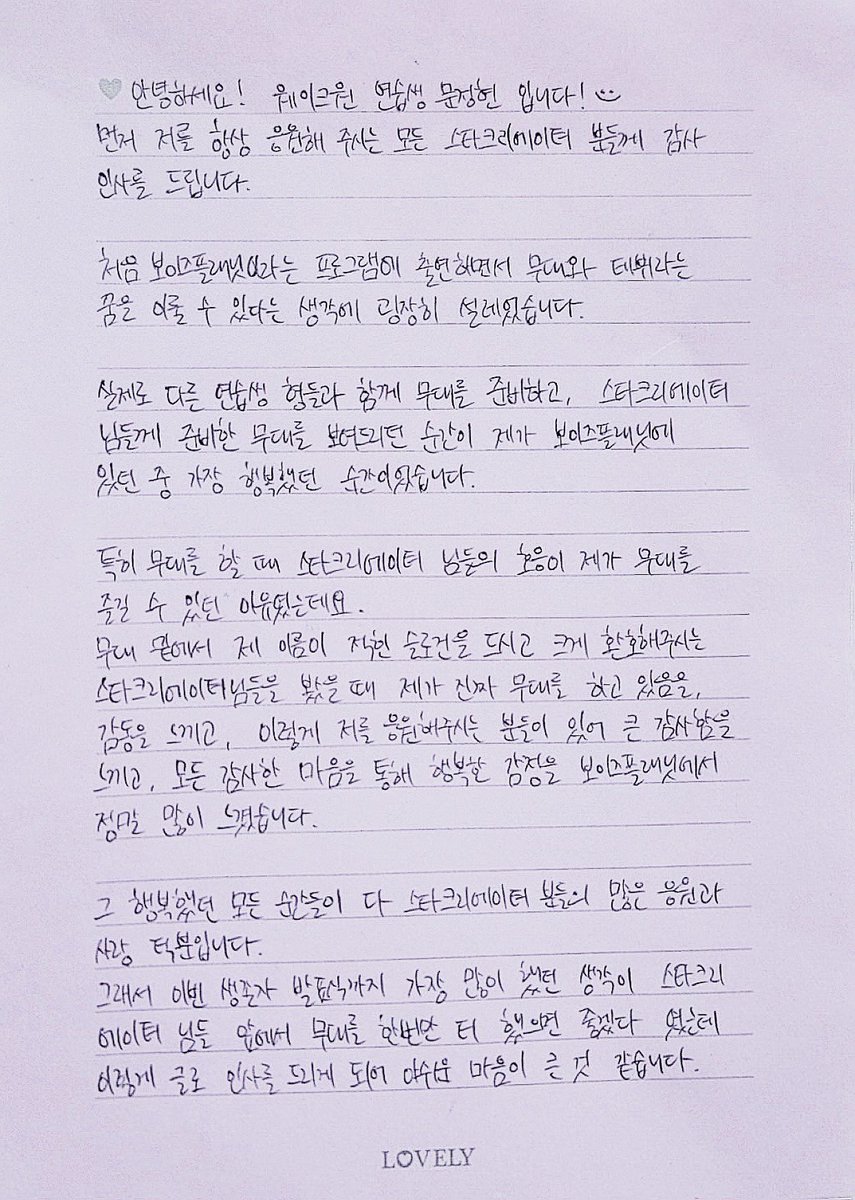 안녕하세요! 웨이크원 연습생 문정현 입니다!
먼저 저를 항상 응원해 주시는 모든 스타크리에이터 분들께 감사
인사를 드립니다.
처음 보이즈플래닛이라는 프로그램에 출연하면서 무대와 데뷔라는
꿈을 이룰 수 있다는 생각에 굉장히 설레였습니다.
실제로 다른 연습생 형들과 함께 무대를 준비하고, 스타크리에이터
님들께 준비한 무대를 보여드리던 순간이 제가 보이즈플래닛에
있던 중 가장 행복했던 순간이었습니다.
특히 무대를 할 때 스타크리에이터 님들의 호응이 제가 무대를
즐길 수 있던 이유였는데요.
무대 밑에서 제 이름이 적힌 슬로건을 드시고 크게 환호해주시는
스타크리에이터님들을 봤을 때 제가 진짜 무대를 하고 있음을,
감동을 느끼고, 이렇게 저를 응원해주시는 분들이 있어 큰 감사함을
느끼고, 모든 감사한 마음을 통해 행복한 감정을 보이즈플래닛에서
정말 많이 느꼈습니다.
그 행복했던 모든 순간들이 다 스타크리에이터 분들의 많은 응원과
사랑 덕분입니다.
그래서 이번 생존자 발표식까지 가장 많이 했던 생각이 스타크리
에이터 님들 앞에서 무대를 한번만 더 했으면 좋겠다 였는데
이렇게 글로 인사를 드리게 되어 아쉬운 마음이 큰 것 같습니다.
LOVELY